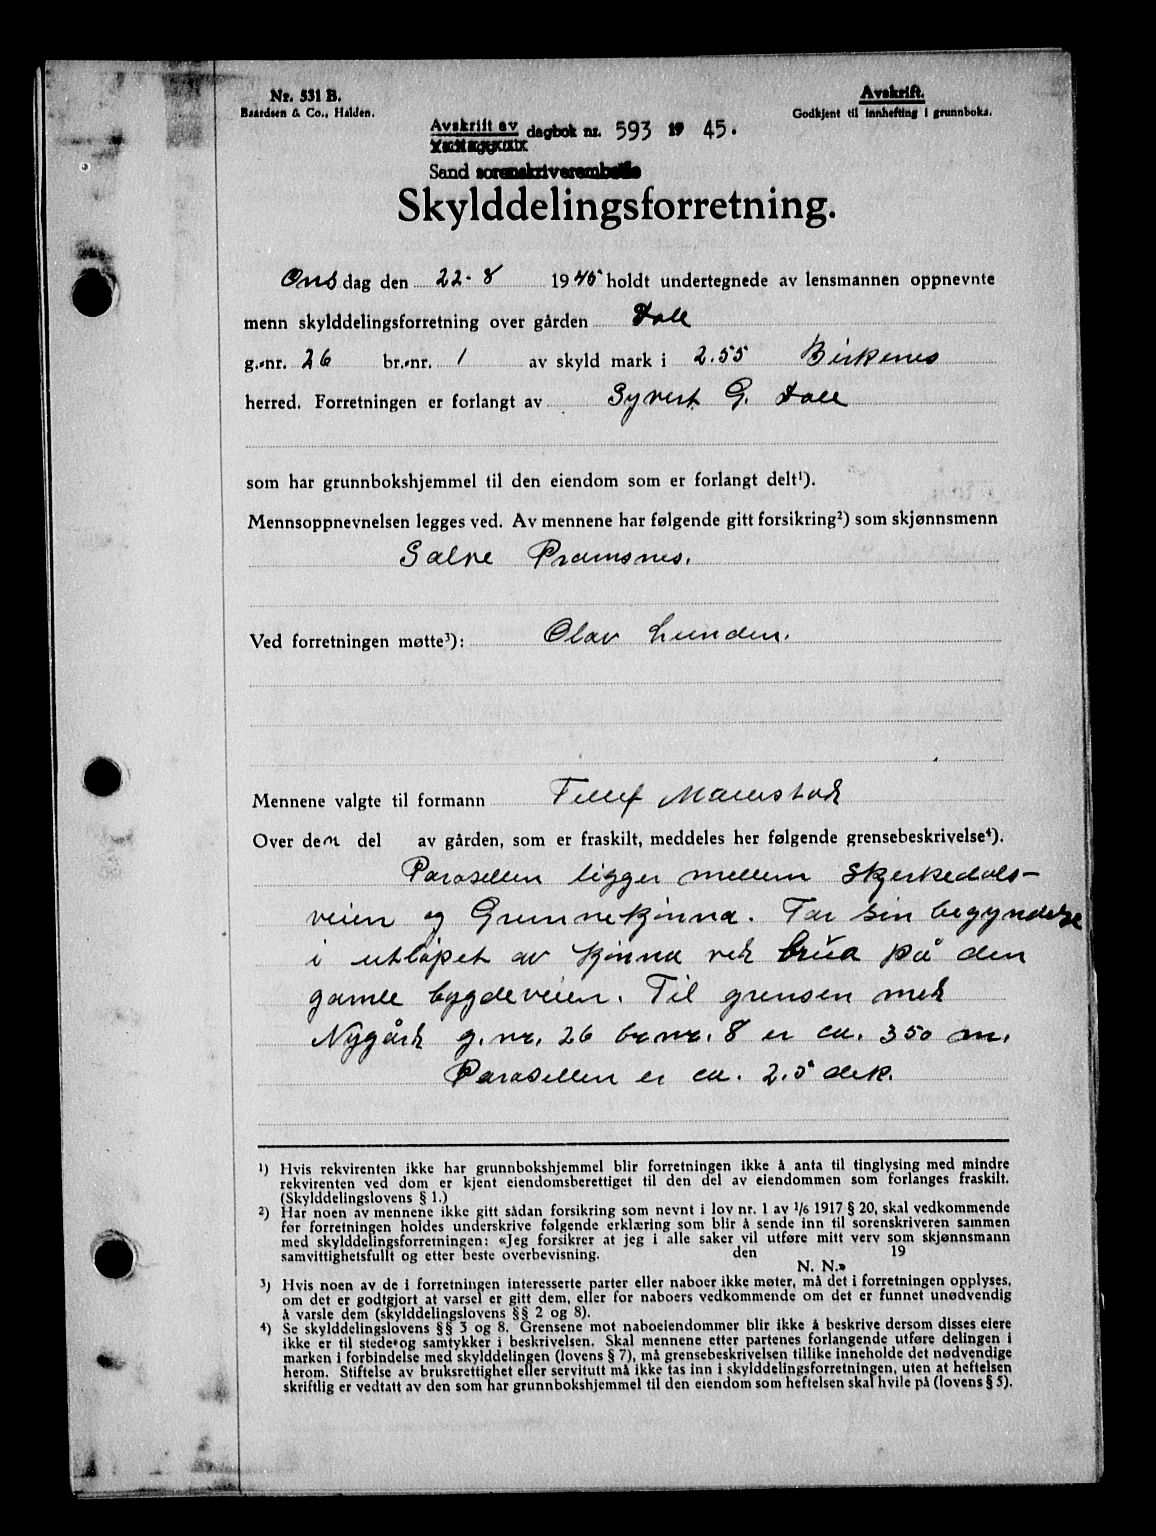 Nr. 531 B.
Baardsen & Co., Halden.
Avskrift.
Godkjent til innhefting i grunnboka.
Avskrift av dagbok nr. 593 1945.
Sand sorenskriverembede
Skylddelingsforretning.
Onsdag den 22-8 1945 holdt undertegnede av lensmannen oppnevnte
menn skylddelingsforretning over gården Dale
g.-nr. 26 br.-nr. 1 av skyld mark i 2.55 Birkenes
herred. Forretningen er forlangt av Syvert G. Dale
som har grunnbokshjemmel til den eiendom som er forlangt delt¹).
Mennsoppnevnelsen legges ved. Av mennene har følgende gitt forsikring²) som skjønnsmenn
Salve
Ved forretningen møtte³): Olav Lunden.
Mennene valgte til formann
Over den del av gården, som er fraskilt, meddeles her følgende grensebeskrivelse⁴).
Parsellen ligger mellem Skjerkedals-
veien og Grunnekjønna. Tar sin begyndelse
i utløpet av kjønna ved brua på den
gamle bygdeveien. Til grensen med
Nygård g. nr. 26 br. nr. 8 er ca. 350 m.
Parsellen er ca. 2.5 dek.
¹) Hvis rekvirenten ikke har grunnbokshjemmel blir forretningen ikke å anta til tinglysing med mindre
rekvirenten ved dom er kjent eiendomsberettiget til den del av eiendommen som forlanges fraskilt.
(Skylddelingslovens § 1.)
²) Har noen av mennene ikke gitt sådan forsikring som nevnt i lov nr. 1 av 1/6 1917 § 20, skal vedkommende
før forretningen holdes underskrive følgende erklæring som blir å sende inn til sorenskriveren sammen
med skylddelingsforretningen: «Jeg forsikrer at jeg i alle saker vil utføre mitt verv som skjønnsmann
samvittighetsfullt og etter beste overbevisning. den 19
N. N.»
³) Hvis noen av de i forretningen interesserte parter eller naboer ikke møter, må det i forretningen opplyses,
om det er godtgjort at varsel er gitt dem, eller for naboers vedkommende om det er funnet unødvendig
å varsle dem (skylddelingslovens §§ 2 og 8).
⁴) Se skylddelingslovens §§ 3 og 8. Grensene mot naboeiendommer blir ikke å beskrive dersom disses eiere
ikke er til stede og samtykker i beskrivelsen. Skal mennene etter partenes forlangende utføre delingen i
marken i forbindelse med skylddelingen (lovens § 7), må grensebeskrivelsen tillike inneholde det nødvendige
herom. Stiftelse av bruksrettighet eller servitutt må ikke tas inn i skylddelingsforretningen, uten at heftelsen
skriftlig er vedtatt av den som har grunnbokshjemmel til den eiendom som heftelsen skal hvile på (lovens § 5).